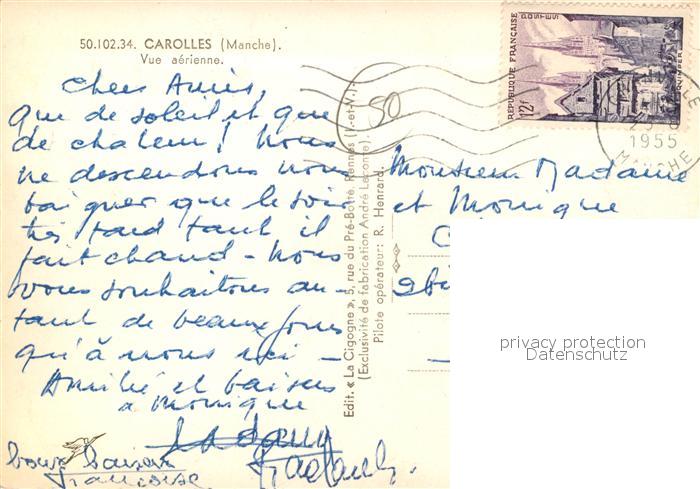 50.102.34. CAROLLES (Manche).
Vue aérienne.
Chers Amis,
que de soleil et que
de chaleur ! Nous
ne descendons nous
baiguer que le soir
très tard tant il
fait chaud - Nous
vous souhaitons au-
tant de beaux jours
qu'à nous ici -
Amitié et baisers
à Monique
bons baisers
Françoise
50
Edit. « La Cigogne », 5, rue du Pré-Botté, Rennes (I.-et-V.)
(Exclusivité de fabrication André Leconte).
Pilote opérateur : R. Henrard.
REPUBLIQUE FRANÇAISE
POSTES
12f
QUIMPER
1955
MANCHE
Monsieur Madame
et Monique
privacy protection
Datenschutz